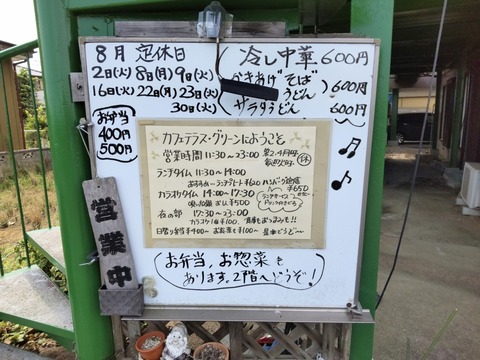 8月 定休日
2日(火)8日(月)9日(火)
16日(火)22日(月)23日(火)
30日(火)
冷し中華 600円
かきあげ そば
うどん 600円
サラダうどん 600円
お弁当
400円
500円
カフェテラス・グリーンにようこそ
営業時間 11:30〜23:00
休
ランチタイム 11:30〜14:00
ハンバーグ定食
¥650
カラオケタイム 14:00〜17:30
¥500
夜の部 17:30〜23:00
カラオケ1曲 ¥100
日替り弁当 ¥400〜
営業中
お弁当、お惣菜も
あります。2階へどうぞ!